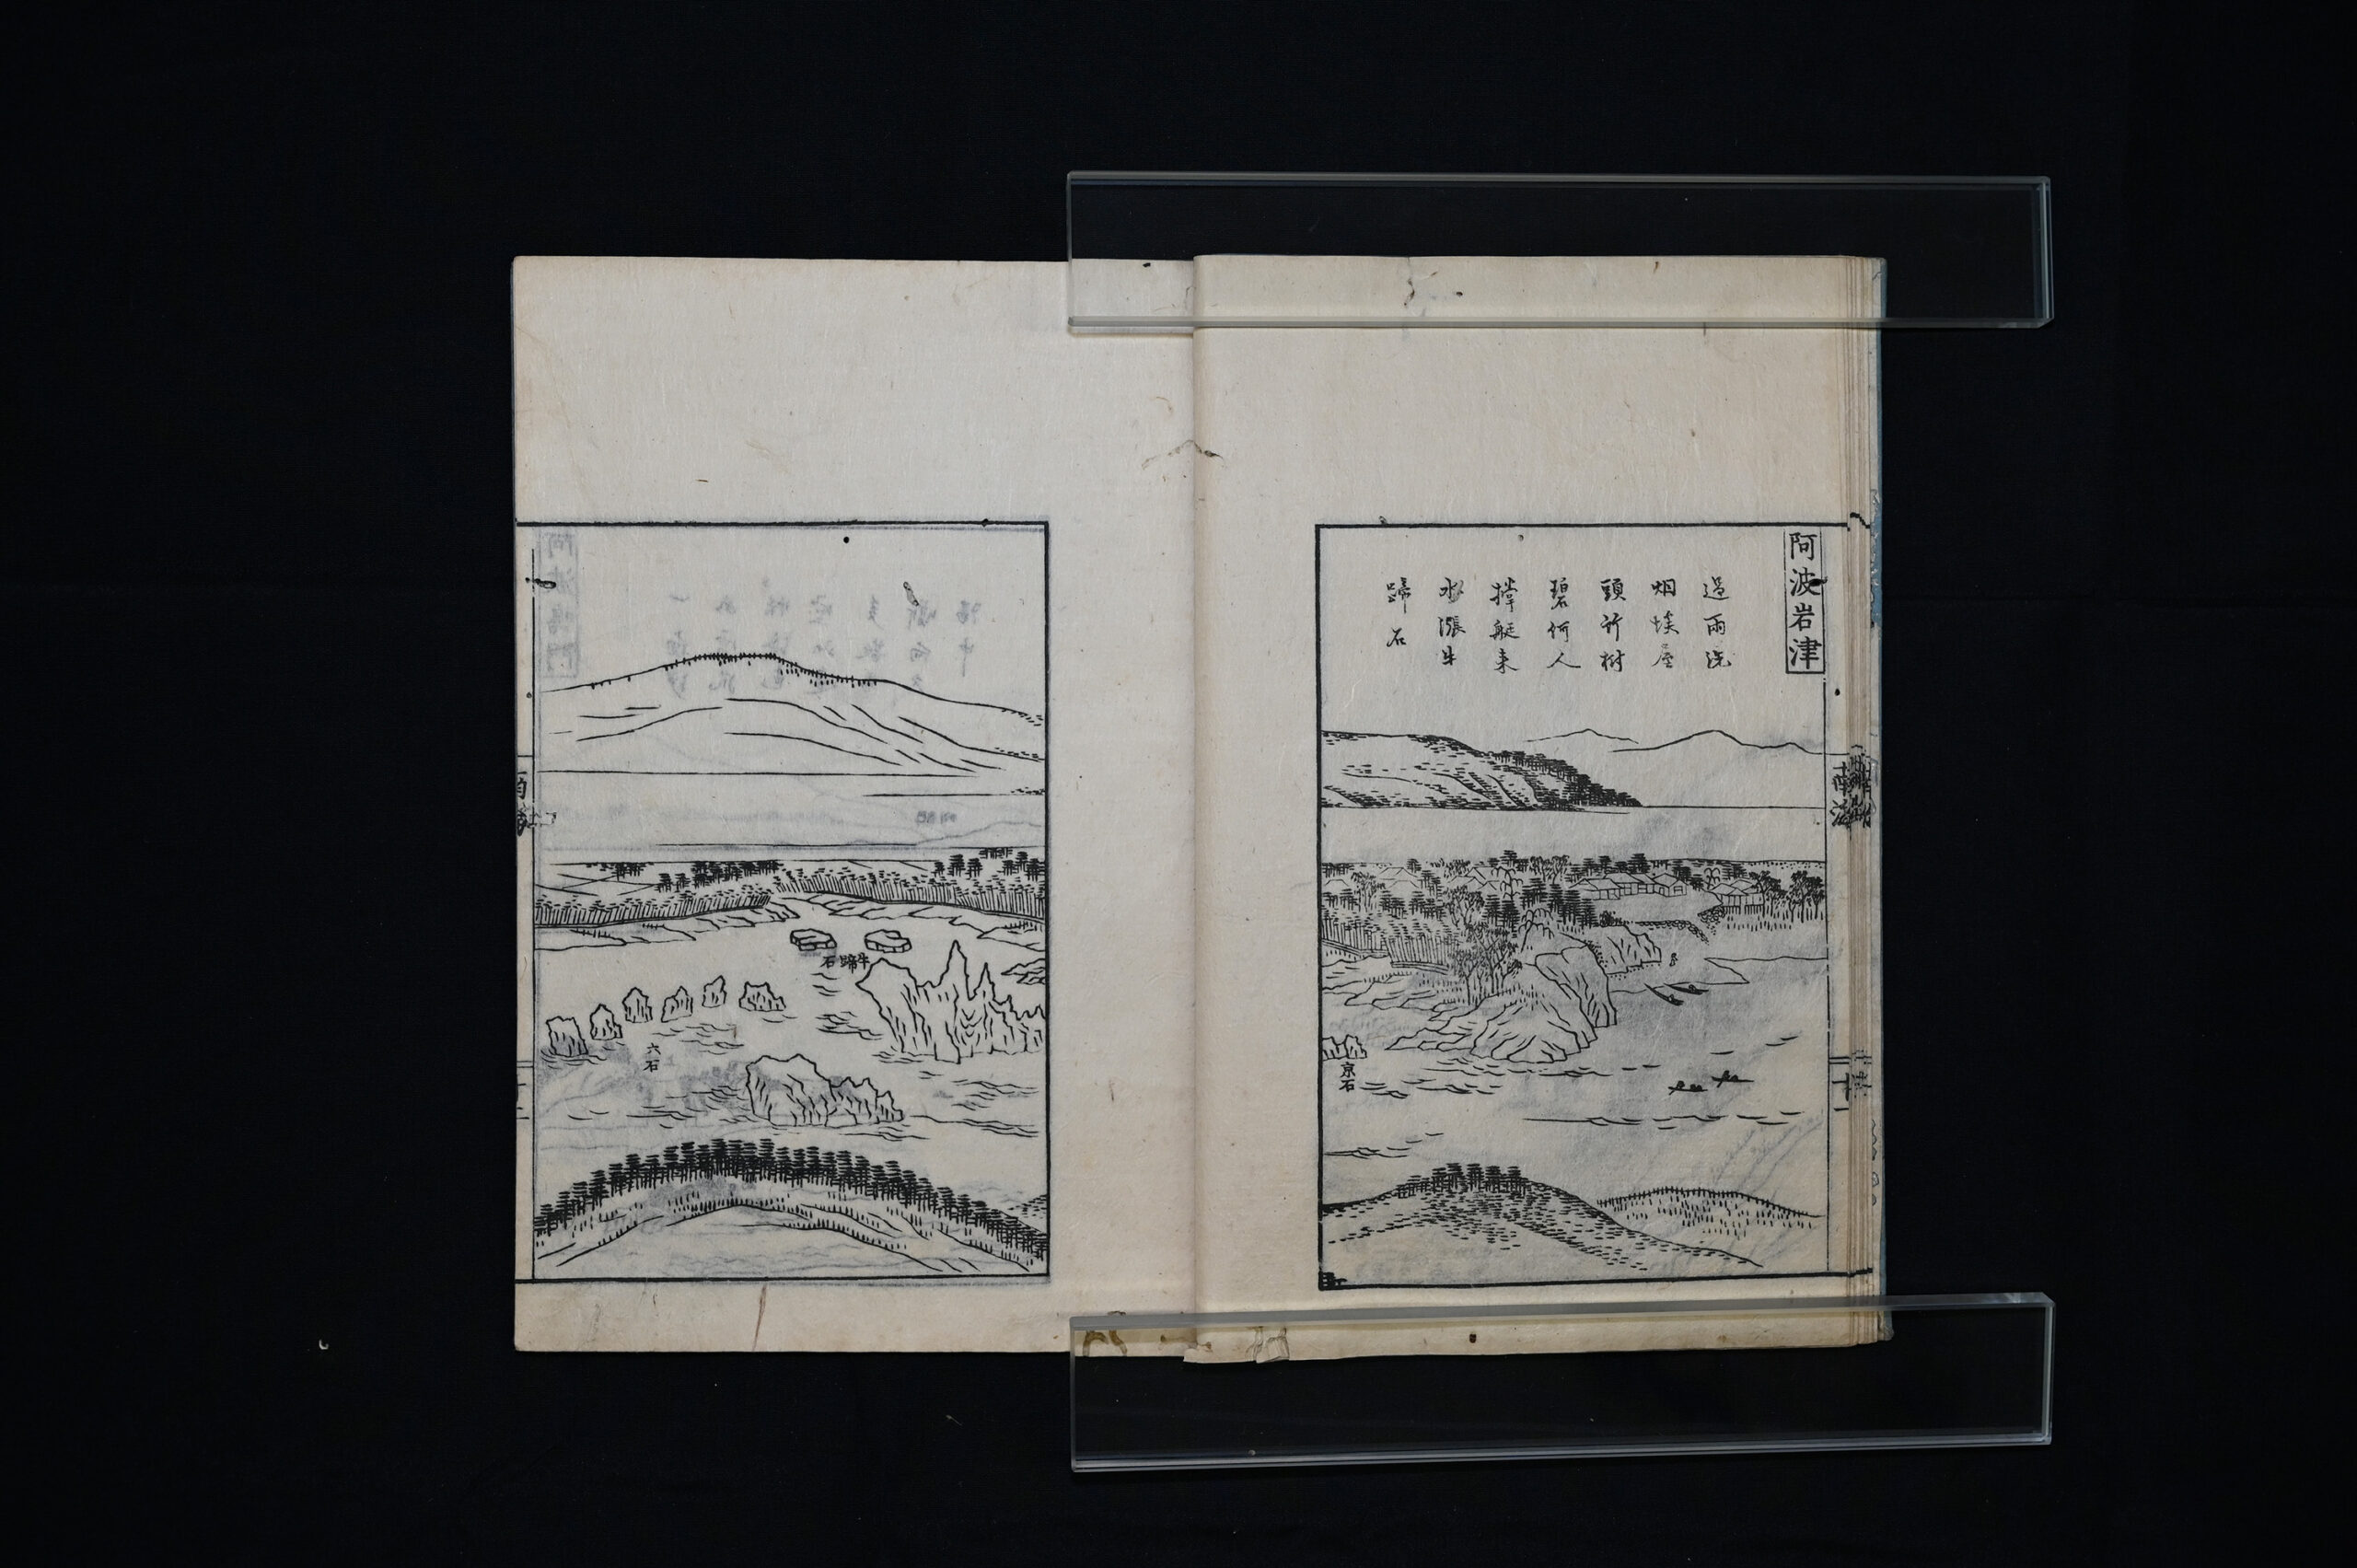 阿波岩津
過雨洗
烟埃屋
頭竹樹
碧何人
撑艇来
水漲牛
蹄石
京石
牛蹄石
六石